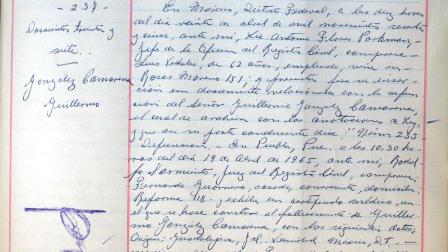 - 237 -
Documentos treinta y
siete. -
González Camarena
Guillermo
En México, Distrito Federal, a las diez horas
del día veinte de abril de mil novecientos sesenta
y cinco, ante mí, Lic. Antonio Flores
Jefe de la Oficina del Registro Civil, comparece
Luis de 62 años, empleado, vive en
Rosas Moreno 151; y presenta para su inser-
ción en documento relacionado con la defun-
ción del Señor Guillermo González Camarena,
el cual se archiva con las anotaciones de Ley,
y que en su parte conducente dice: "Núm 235
Defunción. - En Puebla, Pue. a las 10.30 ho-
ras del día 19 de Abril de 1965, ante mí, Rodol-
fo Sarmiento, Juez del Registro Civil, comparece
Fernando casado, comerciante, domicilio
Reforma 718 y exhibe un certificado médico, en
el que se hace constar el fallecimiento de Guiller-
mo González Camarena, con los siguientes datos,
Origen: Guadalajara, Jal. México, D.F. -